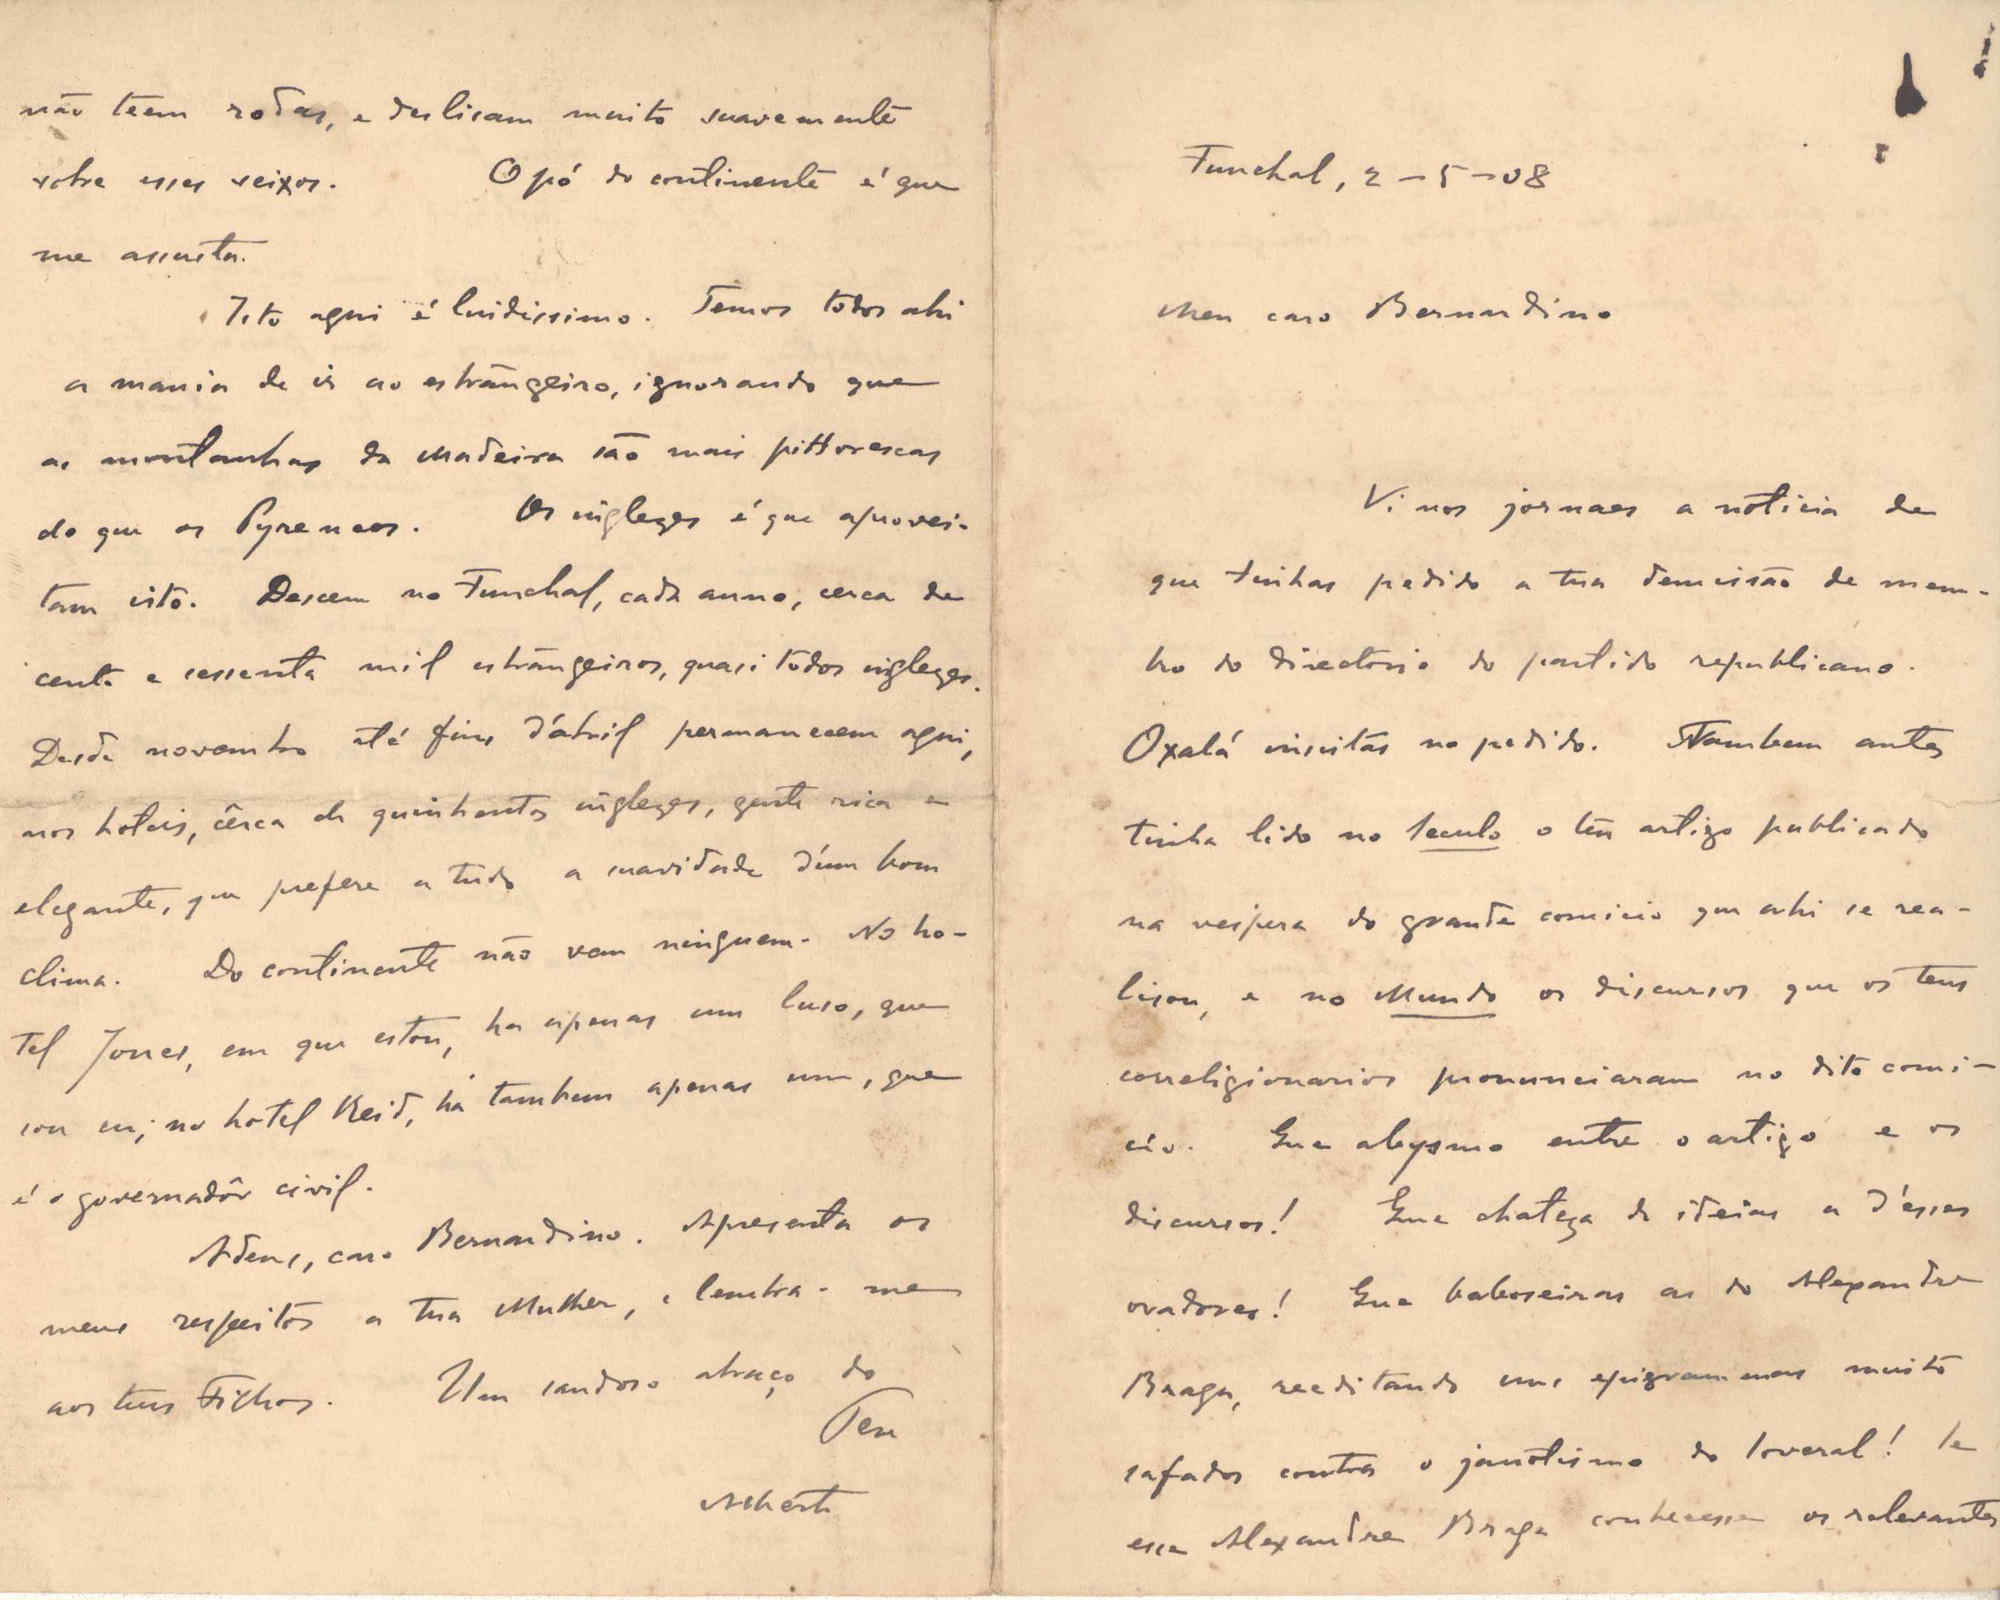 Funchal, 2-5-08
Meu caro Bernardino
Vi nos jornaes a noticia de
que tinhas pedido a tua demissão de mem-
bro do directorio do partido republicano.
Oxalá insistas no pedido. Tambem antes
tinha lido no Seculo o teu artigo publicado
na vespera do grande comicio que ahi se rea-
lisou, e no Mundo os discursos que os teus
correligionarios pronunciaram no dito comi-
cio. Que abysmo entre o artigo e os
discursos! Que chateza de ideias a d'esses
oradores! Que baboseiras as do Alexandre
Braga, reeditando uns epigrammas muito
safados contra o janotismo do Soveral! Se
esse Alexandre Braga conhecesse os relevantes
não têem rodas, e deslisam muito suavemente
sobre esses seixos. O pó do continente é que
me assusta.
Isto aqui é lindissimo. Temos todos ahi
a mania de ir ao estrangeiro, ignorando que
as montanhas da Madeira são mais pittorescas
do que os Pyreneos. Os inglezes é que aprovei-
tam isto. Descem no Funchal, cada anno, cerca de
cento e sessenta mil estrangeiros, quasi todos inglezes.
Desde novembro até fins d'abril permanecem aqui,
nos hoteis, cêrca de quinhentos inglezes, gente rica e
elegante, que prefere a tudo a suavidade d'um bom
clima. Do continente não vem ninguem. No ho-
tel Jones, em que estou, ha apenas um luso, que
sou eu; no hotel Reid, ha tambem apenas um, que
é o governadôr civil.
Adeus, caro Bernardino. Apresenta os
meus respeitos a tua Mulher, e lembra-me
aos teus Filhos. Um saudoso abraço do
Teu
Alberto